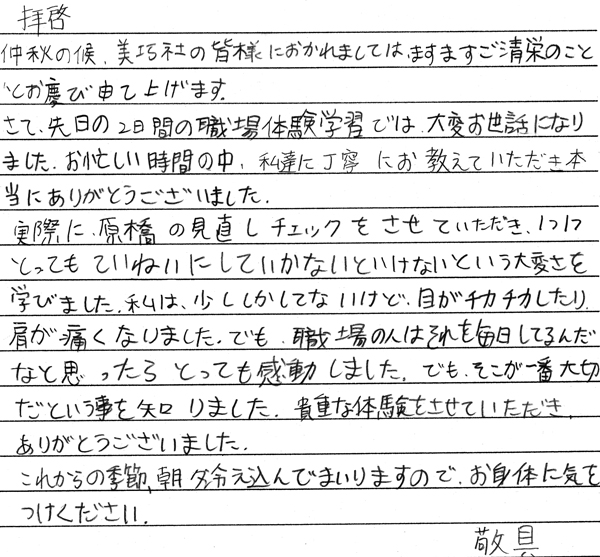 拝啓
仲秋の候、美巧社の皆様におかれましては、ますますご清栄のこと
とお慶び申て上げます。
さて、先日の2日間の職場体験学習では、大変お世話になり
ました。お忙しい時間の中、私達に丁寧にお教えていただき本
当にありがとうございました。
実際に、原橋の見直しチェックをさせていただき、1つ1つ
とってもていねいにしていかないといけないという大変さを
学びました。私は、少ししかしてないけど、目がチカチカしたり、
肩が痛くなりました。でも、職場の人はそれを毎日してるんだ
なと思ったらとっても感動しました。でも、そこが一番大切
だという事を知りました。貴重な体験をさせていただき、
ありがとうございました。
これからの季節、朝夕冷え込んでまいりますので、お身体に気を
つけください。
敬具